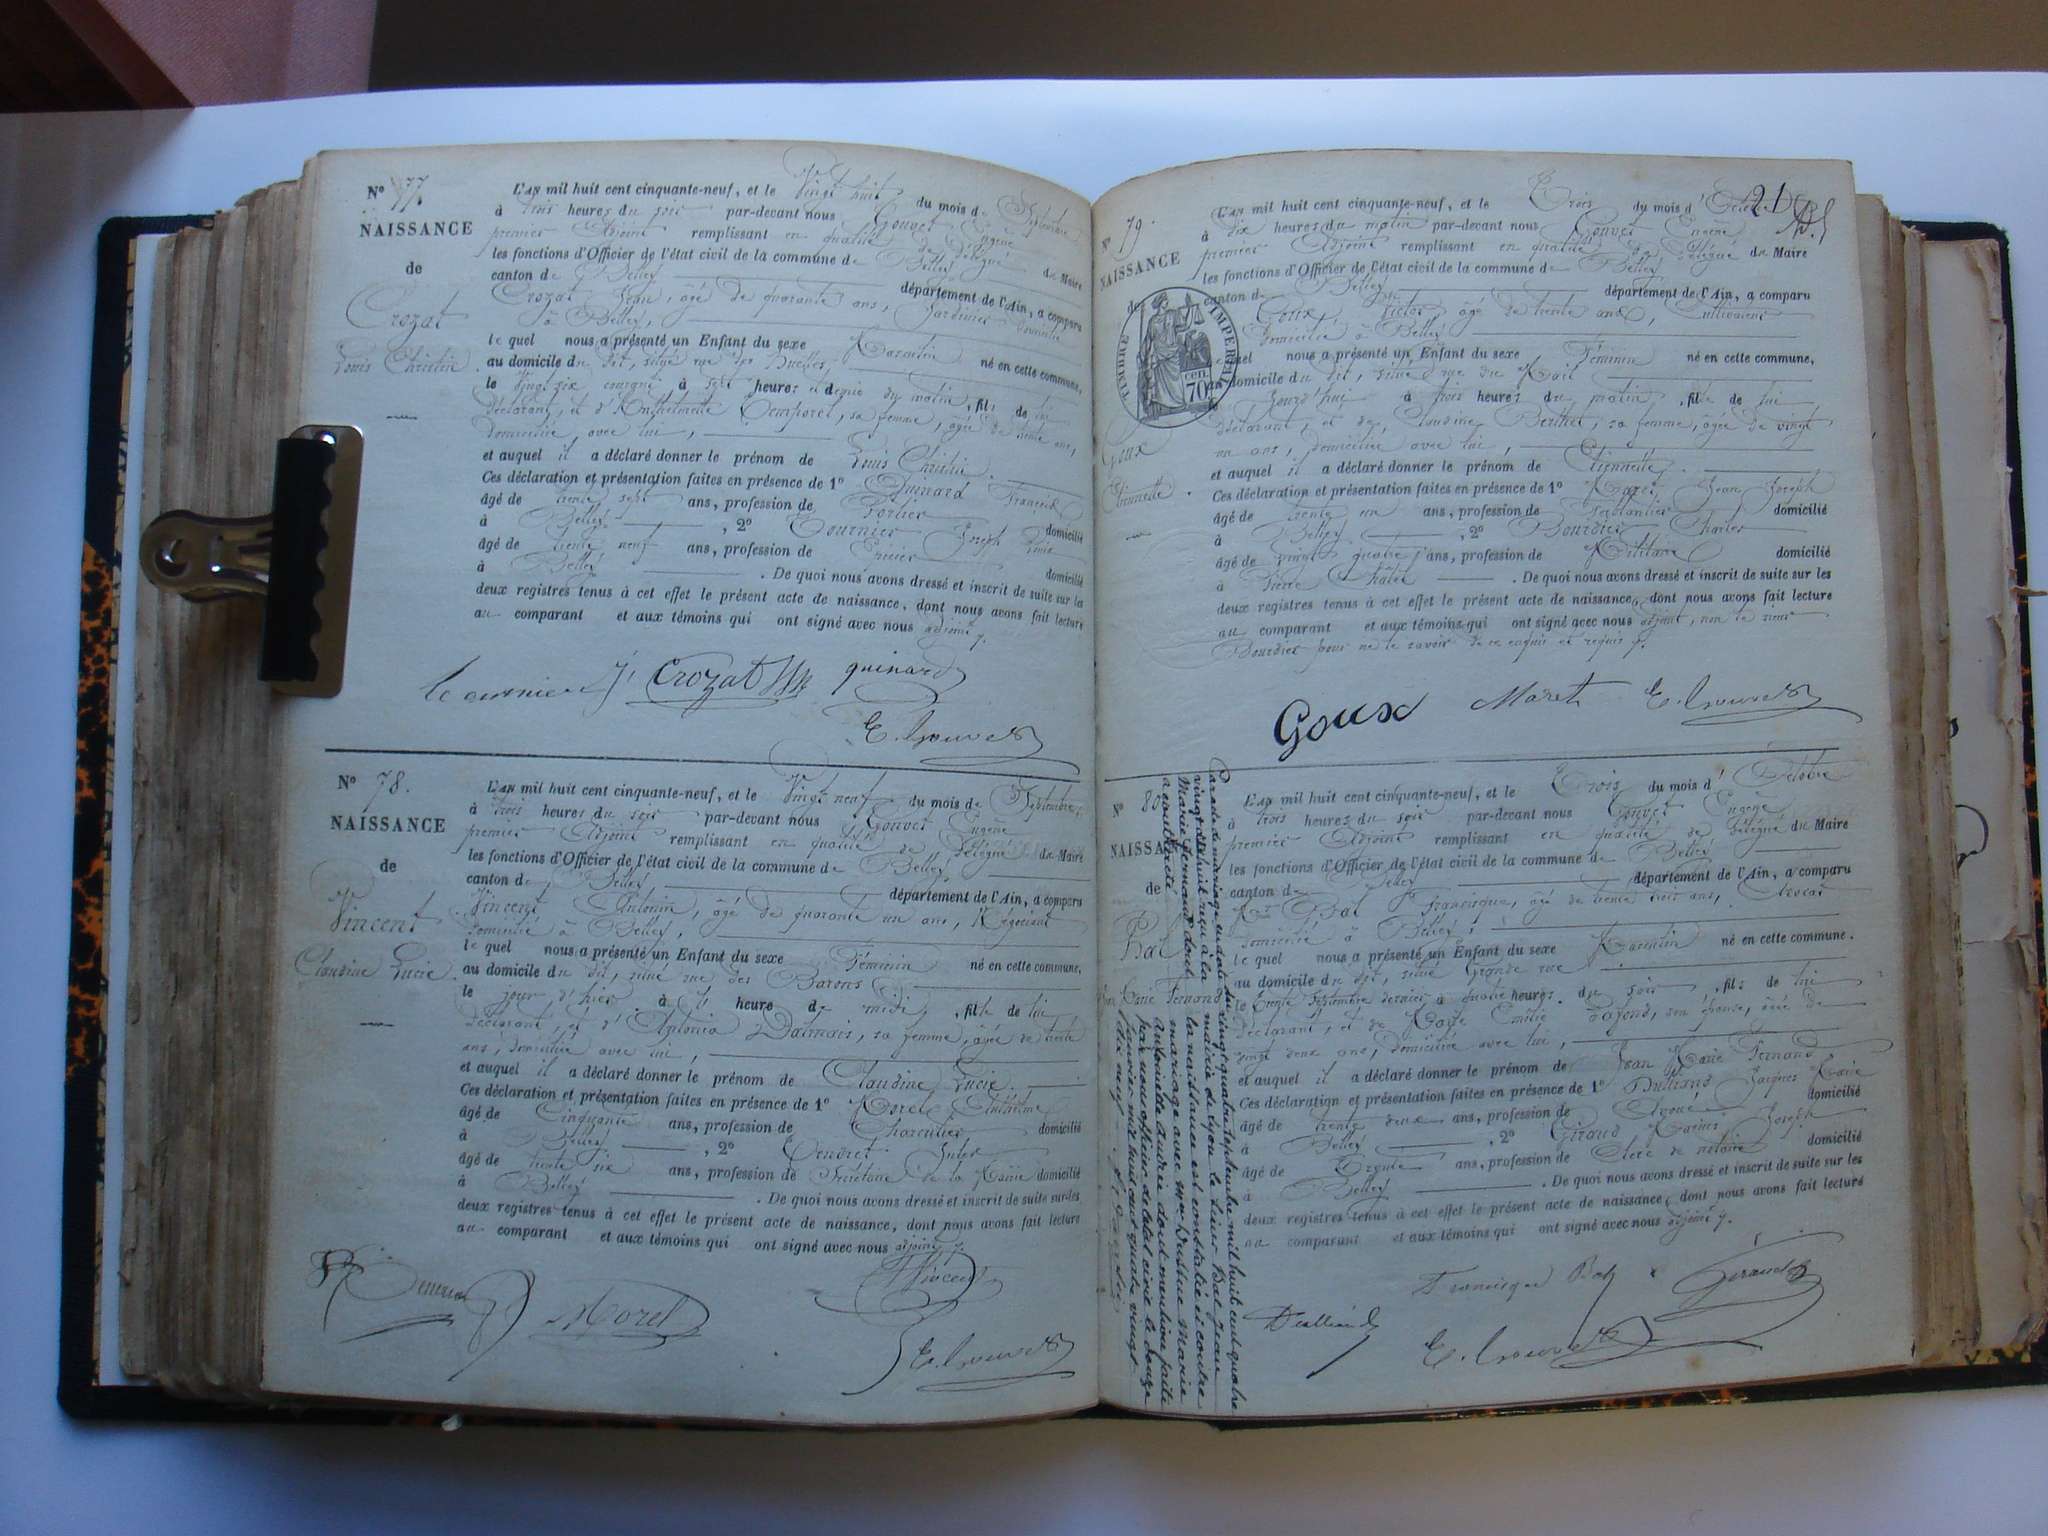 N° 77.
NAISSANCE
de
Crozat
Louis Christin
L'an mil huit cent cinquante-neuf, et le Vingt huit du mois de Septembre
à trois heures du soir par-devant nous Gouvet Eugène
premier Adjoint remplissant en qualité de Délégué du Maire
les fonctions d'Officier de l'état civil de la commune de Belley
canton de Belley département de l'Ain, a comparu
Crozat Jean, âgé de quarante ans, Jardinier domicilié
à Belley,
le quel nous a présenté un Enfant du sexe Masculin né en cette commune,
au domicile du dit, situé rue des Ruelles,
le Vingt six courant à sept heures et demie du matin, fils de lui
déclarant, et d'Anthelmette Temporal, sa femme, âgée de trente ans,
domiciliée avec lui,
et auquel il a déclaré donner le prénom de Louis Christin
Ces déclaration et présentation faites en présence de 1° Guinard François
âgé de trente sept ans, profession de Portier domicilié
à Belley, 2° Tournier Joseph
âgé de trente neuf ans, profession de Epicier domicilié
à Belley. De quoi nous avons dressé et inscrit de suite sur les
deux registres tenus à cet effet le présent acte de naissance, dont nous avons fait lecture
au comparant et aux témoins qui ont signé avec nous adjoint
Crozat guinard
E. Gouvet
N° 78.
NAISSANCE
de
Vincent
Claudine Lucie
L'an mil huit cent cinquante-neuf, et le Vingt neuf du mois de Septembre,
à trois heures du soir par-devant nous Gouvet Eugène
premier Adjoint remplissant en qualité de Délégué du Maire
les fonctions d'Officier de l'état civil de la commune de Belley
canton de Belley département de l'Ain, a comparu
Vincent Antonin, âgé de quarante un ans, Négociant
domicilié à Belley,
le quel nous a présenté un Enfant du sexe Féminin né en cette commune,
au domicile du dit, situé rue des Barons
le jour d'hier à heure de midi, fille de lui
déclarant, et d'Antonia Dalmais, sa femme, âgée de trente
ans, domiciliée avec lui,
et auquel il a déclaré donner le prénom de Claudine Lucie.
Ces déclaration et présentation faites en présence de 1° Morel Anthelme
âgé de Cinquante ans, profession de Charcutier domicilié
à Belley, 2° Vendret Jules
âgé de trente six ans, profession de Secrétaire de la Mairie domicilié
à Belley. De quoi nous avons dressé et inscrit de suite sur les
deux registres tenus à cet effet le présent acte de naissance, dont nous avons fait lecture
au comparant et aux témoins qui ont signé avec nous adjoint
Vincent
Morel
E. Gouvet
21
N° 79.
NAISSANCE
de
Goux
Etiennette.
TIMBRE IMPERIAL
70 cen.
L'an mil huit cent cinquante-neuf, et le Trois du mois d'Octobre
à dix heures du matin par-devant nous Gouvet Eugène
premier Adjoint remplissant en qualité de Délégué du Maire
les fonctions d'Officier de l'état civil de la commune de Belley
canton de Belley département de l'Ain, a comparu
Goux, Victor âgé de trente ans, Cultivateur
domicilié à Belley
lequel nous a présenté un Enfant du sexe Féminin né en cette commune,
au domicile du dit, situé rue du Mail
le Jourd'hui à trois heures du matin, fille de lui
déclarant, et de Claudine Berthet, sa femme, âgée de vingt
un ans, domiciliée avec lui,
et auquel il a déclaré donner le prénom de Etiennette.
Ces déclaration et présentation faites en présence de 1° Maret Jean Joseph
âgé de trente un ans, profession de Ferblantier domicilié
à Belley, 2° Bourdier Charles
âgé de vingt quatre ans, profession de Militaire domicilié
à Pierre Châtel. De quoi nous avons dressé et inscrit de suite sur les
deux registres tenus à cet effet le présent acte de naissance, dont nous avons fait lecture
au comparant et aux témoins qui ont signé avec nous adjoint, non le sieur
Bourdier pour ne le savoir de ce enquis et requis
Goux Maret E. Gouvet
N° 80
NAISSANCE
de
Bal
Jean Marie Fernand
Par acte de mariage en date du vingt quatre septembre mil huit cent quatre
vingt dix huit reçu à la mairie de Lyon le sieur Bal Jean
Marie Fernand dont la naissance est constatée ci contre
a contracté mariage avec Marie
Antoinette Audrie dont mention faite
par nous officier de l'état civil le douze
janvier mil huit cent quatre vingt
dix neuf
L'an mil huit cent cinquante-neuf, et le Trois du mois d'Octobre
à trois heures du soir par-devant nous Gouvet Eugène
premier Adjoint remplissant en qualité de Délégué du Maire
les fonctions d'Officier de l'état civil de la commune de Belley
canton de Belley département de l'Ain, a comparu
Bal Francisque, âgé de trente trois ans, Avocat
domicilié à Belley,
le quel nous a présenté un Enfant du sexe Masculin né en cette commune.
au domicile du dit, situé Grande rue
le Trente Septembre dernier à quatre heures du soir, fils de lui
déclarant, et de Marie Emélie, son épouse, âgée de
vingt deux ans, domiciliée avec lui,
et auquel il a déclaré donner le prénom de Jean Marie Fernand
Ces déclaration et présentation faites en présence de 1° Dulliand Jacques Marie
âgé de trente deux ans, profession de Avoué domicilié
à Belley, 2° Giraud Marius Joseph
âgé de Trente ans, profession de Clerc de notaire domicilié
à Belley. De quoi nous avons dressé et inscrit de suite sur les
deux registres tenus à cet effet le présent acte de naissance, dont nous avons fait lecture
au comparant et aux témoins qui ont signé avec nous adjoint
Francisque Bal Giraud
Dulliand
E. Gouvet